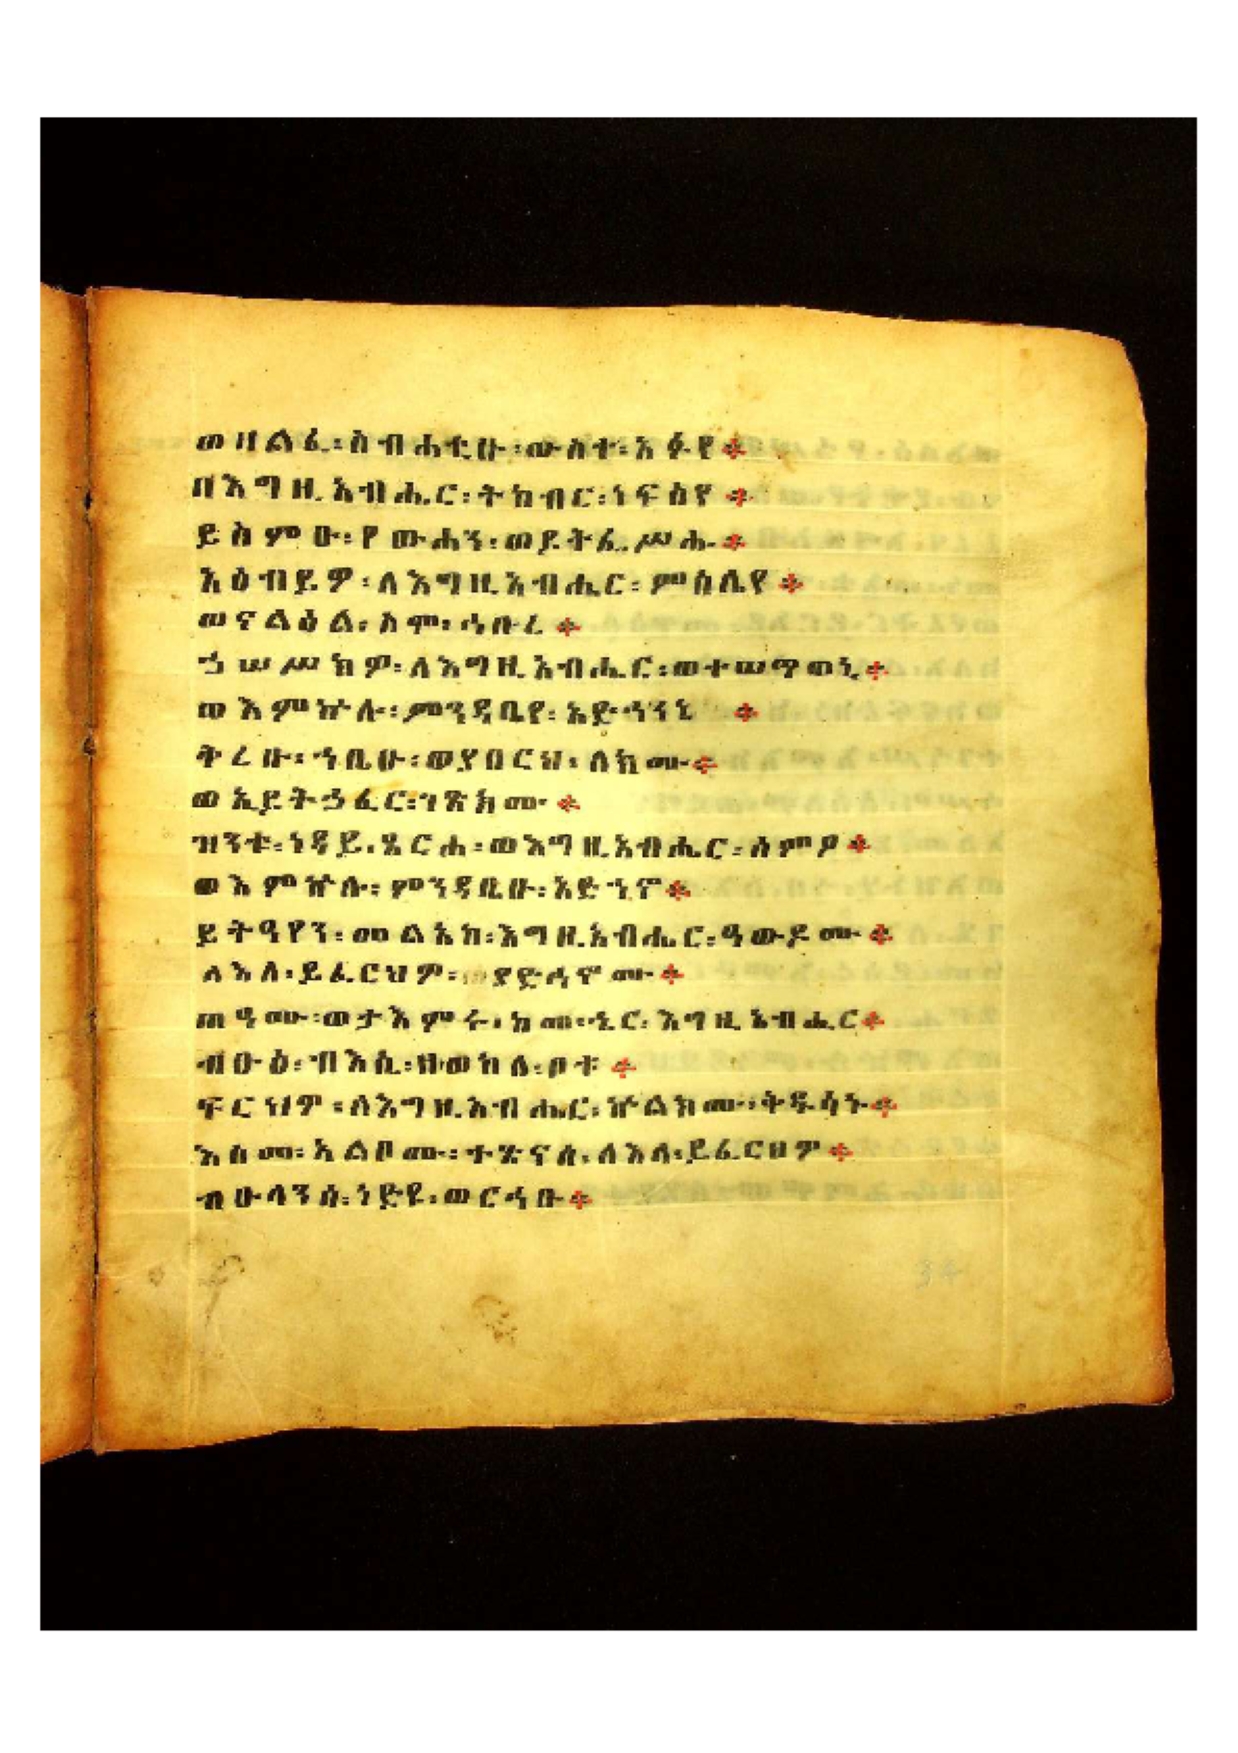 ወዘልፈ፡ስብሐቲሁ፡ውስተ፡አፉየ።
በእግዚአብሔር፡ትከብር፡ነፍስየ።
ይስምዑ፡የውሐን፡ወይትፌሥሑ።
አዕብይዎ፡ለእግዚአብሔር፡ምስሌየ።
ወናልዕል፡ስሞ፡ኅቡረ።
ኀሠሥክዎ፡ለእግዚአብሔር፡ወተሠጥወኒ።
ወእምኵሉ፡ምንዳቤየ፡አድኀነኒ።
ቅረቡ፡ኀቤሁ፡ወያበርህ፡ለክሙ።
ወኢይትኃፈር፡ገጽክሙ።
ዝንቱ፡ነዳይ፡ጸርሐ፡ወእግዚአብሔር፡ሰምዖ።
ወእምኵሉ፡ምንዳቤሁ፡አድኀኖ።
ይትዓየን፡መልአከ፡እግዚአብሔር፡ዓውዶሙ።
ለእለ፡ይፈርህዎ፡ወያድኅኖሙ።
ጠዓሙ፡ወታእምሩ፡ከመ፡ኄር፡እግዚአብሔር።
ብፁዕ፡ብእሲ፡ዘወከለ፡ቦቱ።
ፍርህዎ፡ለእግዚአብሔር፡ኵልክሙ፡ቅዱሳኑ።
እስመ፡አልቦሙ፡ተጽናሰ፡ለእለ፡ይፈርህዎ።
ብዑላንሰ፡ነድዩ፡ወርኅቡ።
34